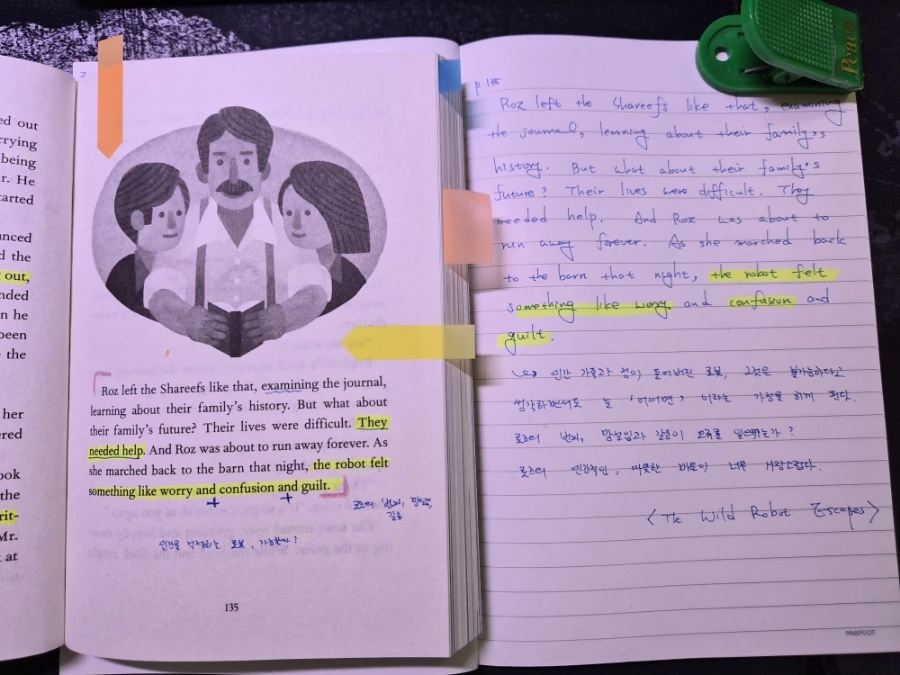 ed out
rrying
being
r. He
tarted
anced
d the
out,
nded
n he
been
the
her
ered
ook
the
rit-
Mr.
at
7
Roz left the Shareefs like that, examining the journal,
learning about their family's history. But what about
their family's future? Their lives were difficult. They
needed help. And Roz was about to run away forever. As
she marched back to the barn that night, the robot felt
something like worry and confusion and guilt.
로즈의 번뇌, 망설임
갈등
인간을 걱정하는 로봇, 가능한가?
135
p 135
Roz left the Shareefs like that, examining
the journal, learning about their family's
history. But what about their family's
future? Their lives were difficult. They
needed help. And Roz was about to
run away forever. As she marched back
to the barn that night, the robot felt
something like worry and confusion and
guilt.
↳ 인간 가족과 정이 들어버린 로봇, 그것은 불가능하다고
생각하면서도 늘 '어쩌면' 이라는 가정을 하게 된다.
로즈의 번뇌, 망설임과 갈등이
로즈의 인간적인, 따뜻한 마음이 너무 사랑스럽다.
<The Wild Robot Escapes>
PINKFOOT
Peace